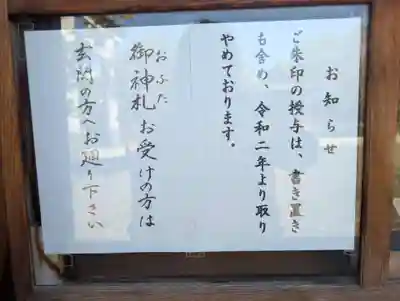 お知らせ
ご朱印の授与は、書き置き
も含め、令和二年より取り
やめております。
おふだ
御神札お受けの方は
玄関の方へお廻り下さい